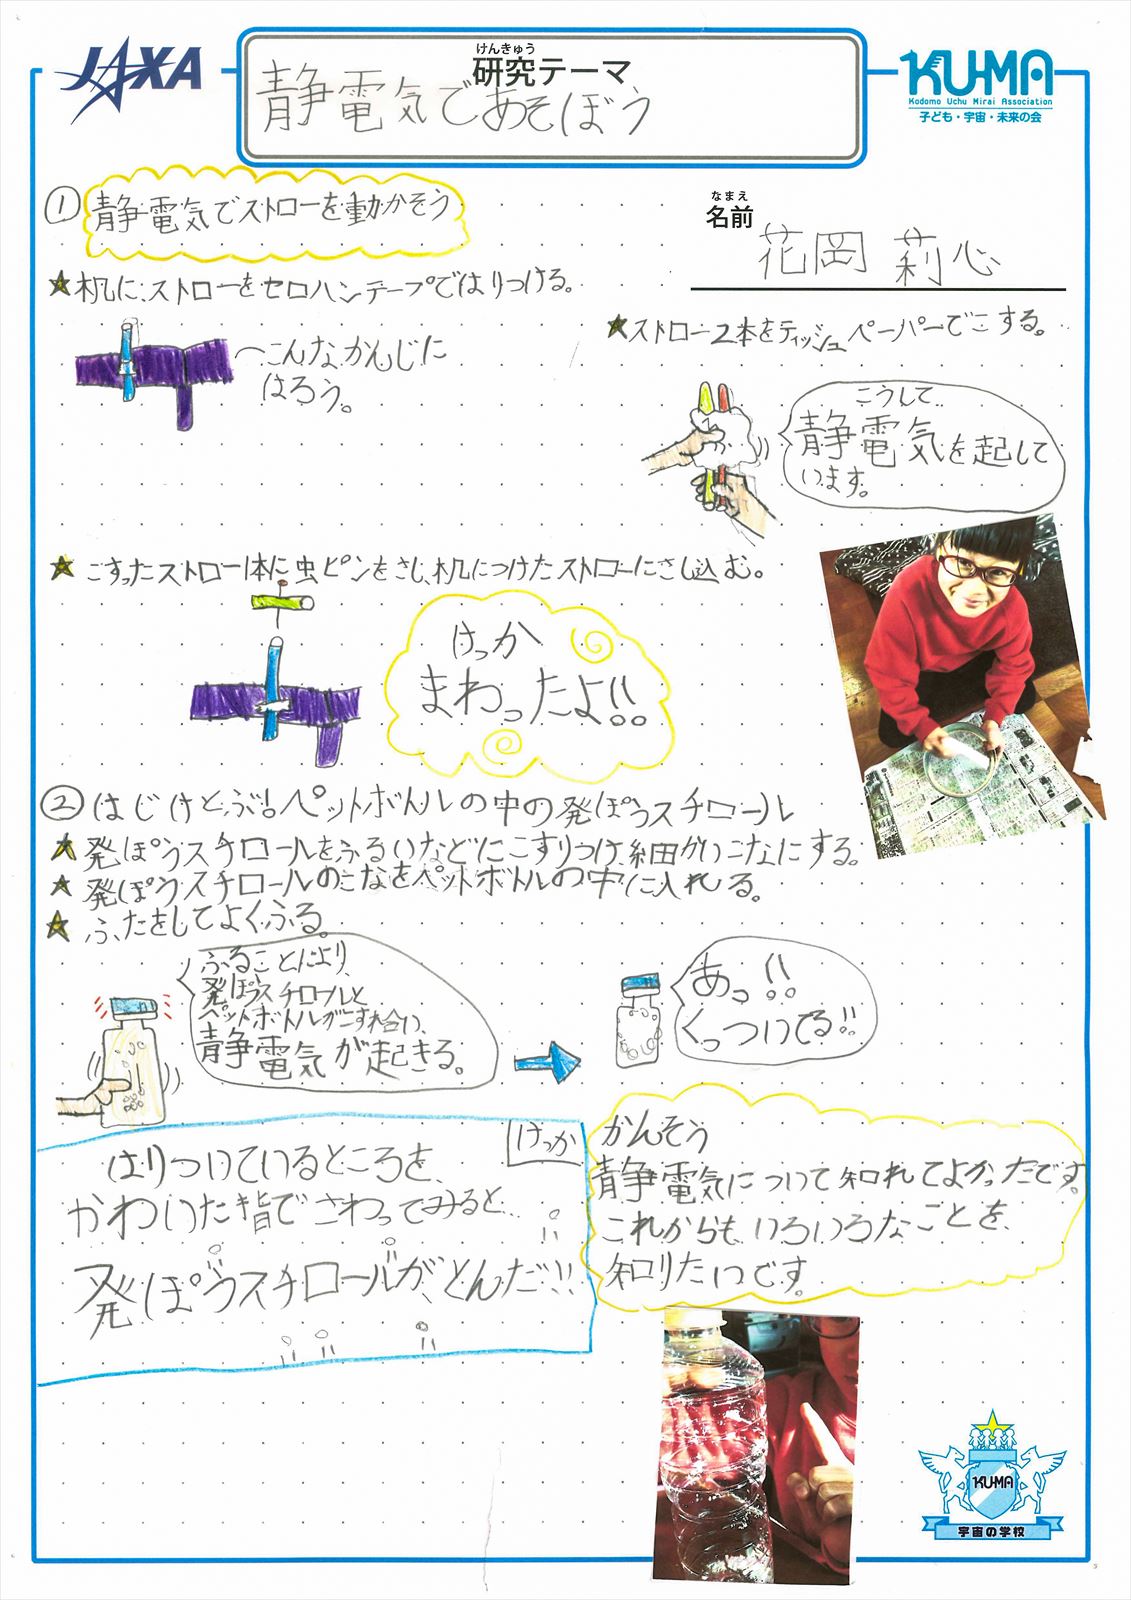 JAXA
けんきゅう
研究テーマ
静電気であそぼう
KU-MA
Kodomo Uchu Mirai Association
子ども・宇宙・未来の会
① 静電気でストローを動かそう
なまえ
名前
花岡 莉心
★机に、ストローをセロハンテープではりつける。
こんなかんじに
はろう。
★ストロー2本をティッシュペーパーでこする。
こうして
静電気を起して
います。
★こすったストロー1本に虫ピンをさし、机につけたストローにさし込む。
けっか
まわったよ!!
②はじけとぶ!ペットボトルの中の発ぽうスチロール
★発ぽうスチロールをふるいなどにこすりつけ、細かいこなにする。
★発ぽうスチロールのこなをペットボトルの中に入れる。
★ふたをしてよくふる。
ふることにより、
発ぽうスチロールと
ペットボトルがこすれ合い、
静電気が起きる。
あっ!!
くっついてる!!
けっか
はりついているところを、
かわいた指でさわってみると…
発ぽうスチロールが、とんだ!!
かんそう
静電気について知れてよかったです。
これからも、いろいろなことを、
知りたいです。
KU-MA
宇宙の学校